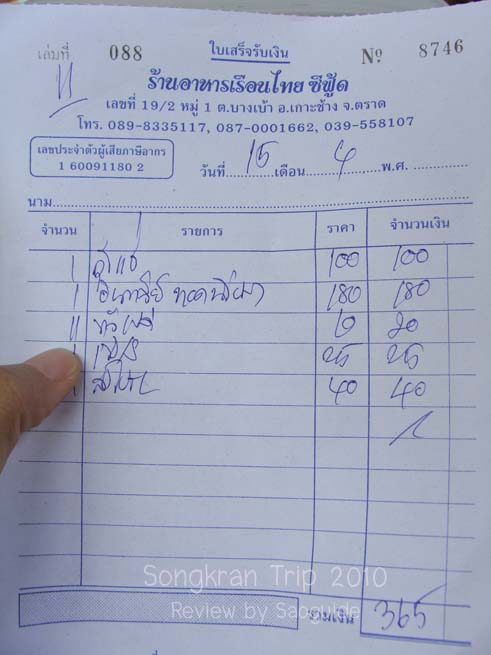 เล่มที่ 088 ใบเสร็จรับเงิน Nº 8746
11
ร้านอาหารเรือนไทย ซีฟู้ด
เลขที่ 19/2 หมู่ 1 ต.บางเบ้า อ.เกาะช้าง จ.ตราด
โทร. 089-8335117, 087-0001662, 039-558107
เลขประจำตัวผู้เสียภาษีอากร
1 60091180 2
วันที่ 15 เดือน 4 พ.ศ.
นาม
จำนวน รายการ ราคา จำนวนเงิน
1 100 100
1 180 180
11 10 20
25 25
1 40 40
Songkran Trip 2010
Review by Saoguide
รวมเงิน 365